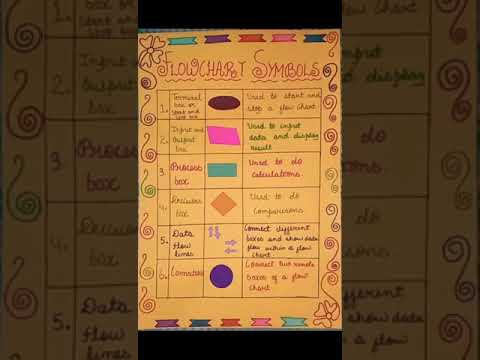 FLOWCHART SYMBOLS
1. Terminal
box or
start and
stop box
Used to start and
stop a flow chart
2. Input and
Output
box
Used to input
data and display
result
3. Process
box
Used to do
calculations.
4. Decision
box
Used to do
comparisons
5. Data
flow
lines
Connect different
boxes and show data
flow within a flow
chart
6. Connectors
Connect two remote
boxes of a flow
chart